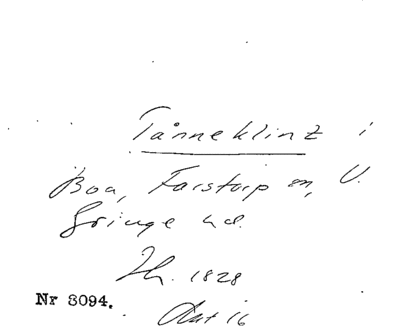 Tånneklint i
Boa, Farstorp sn, V.
Göinge hd.
Jh. 1828
Nr 8094.
Akt 16